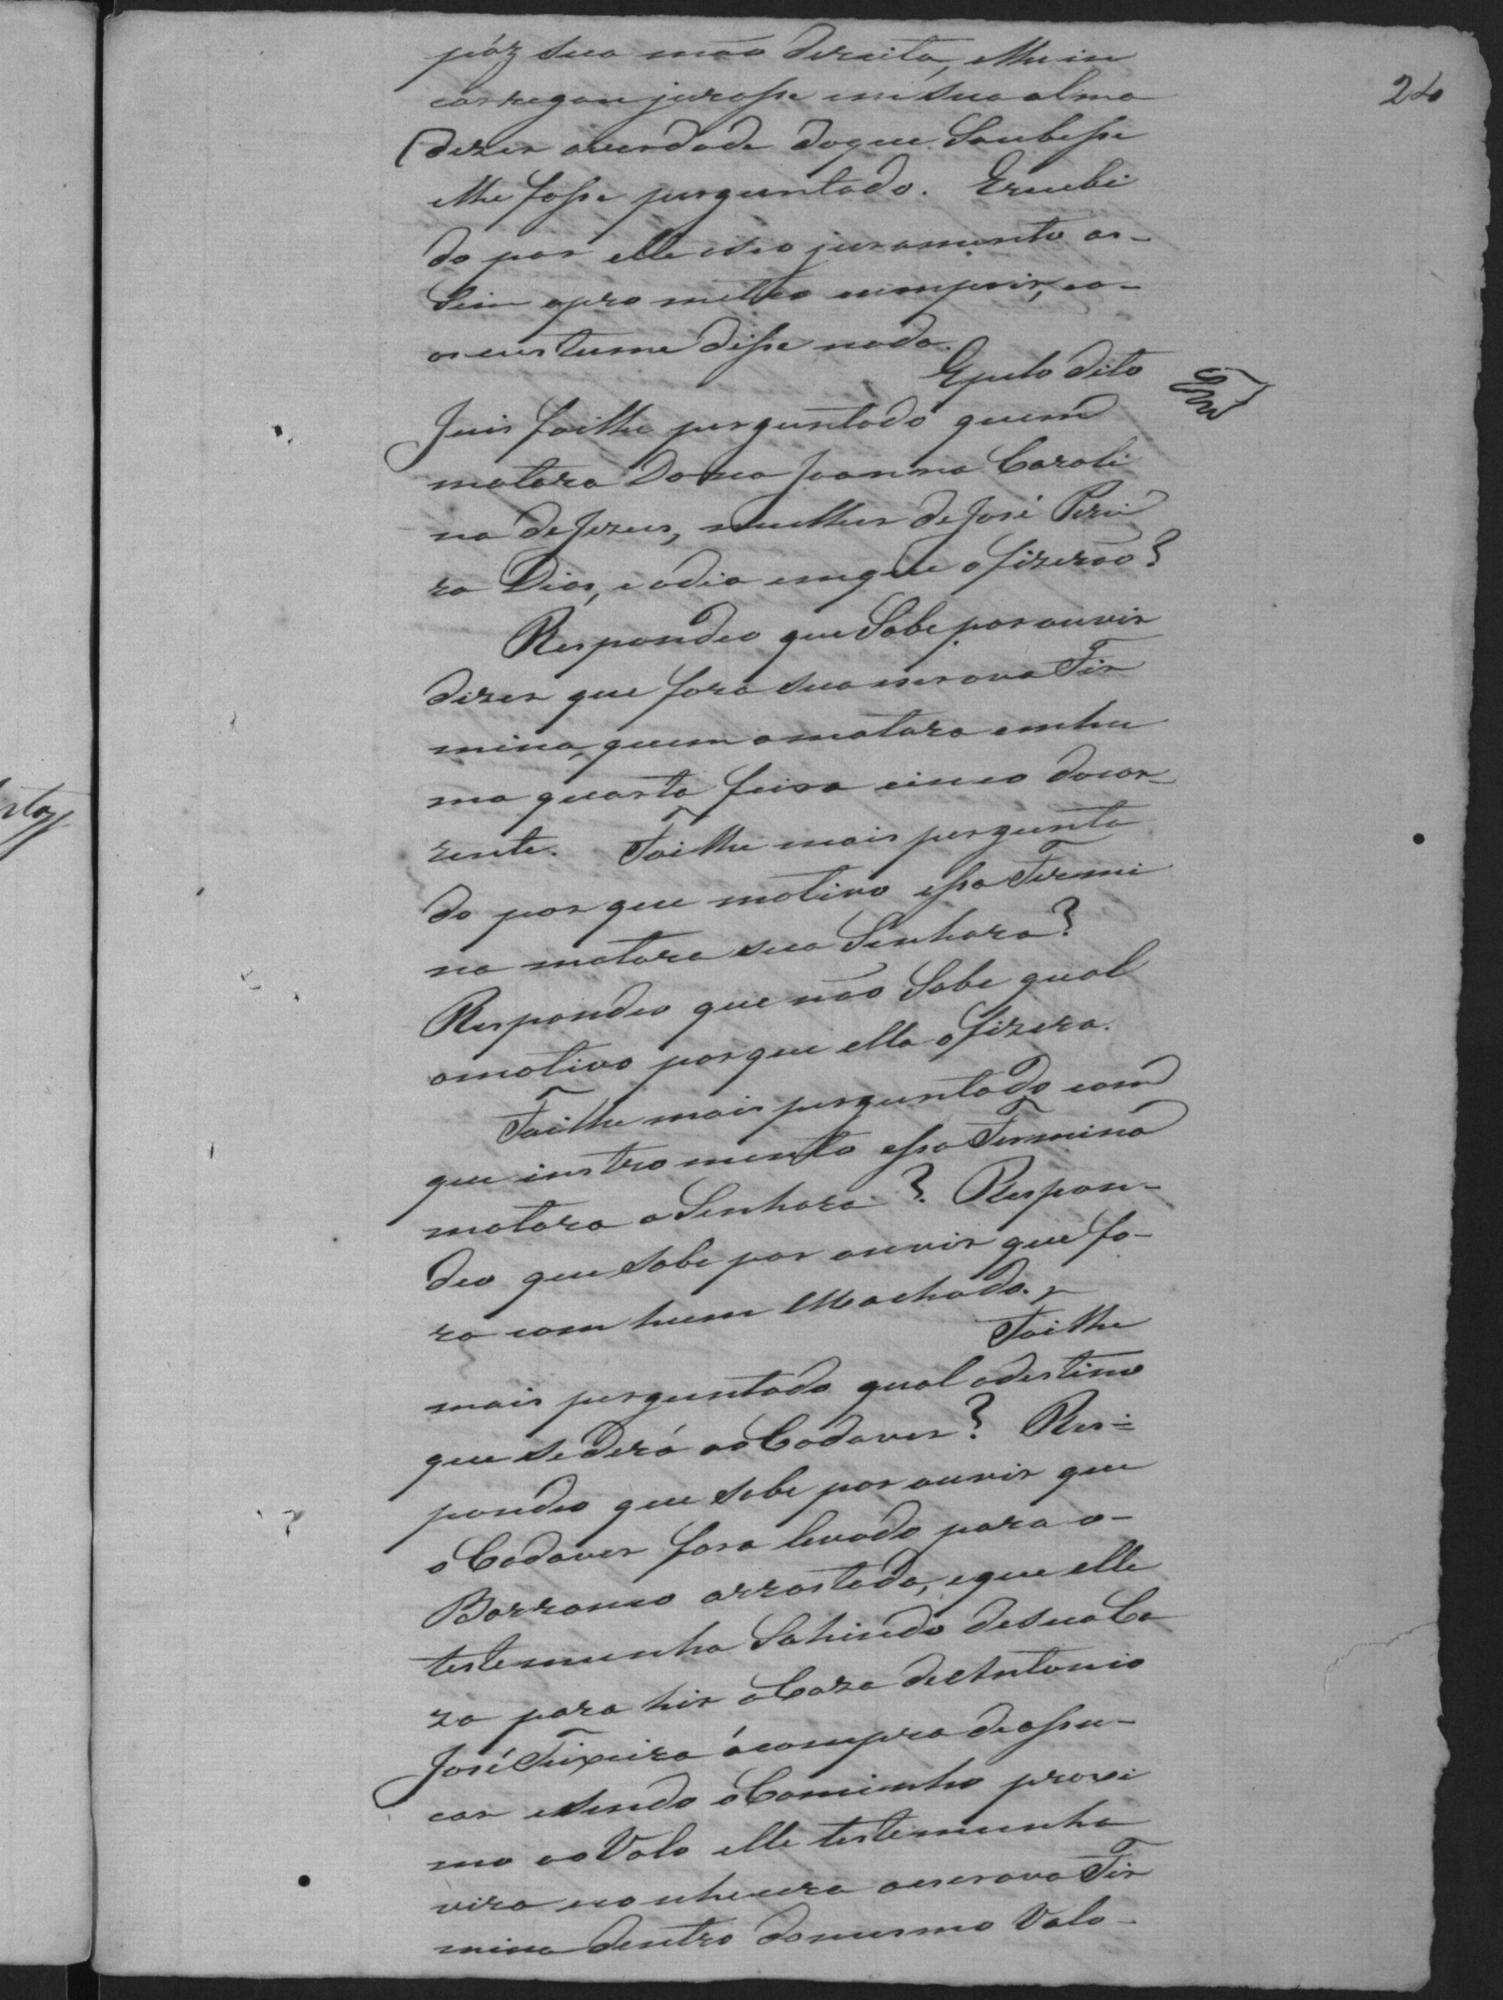 24
póz sua mão direita, elhe in
carregou jurasse em sua alma
dizer averdade doque Soubesse
elhe fosse perguntado. Erecebi
do por elle odio juramento as-
Sim opro metteo cumprir, ea-
os custume disse nada.
Epelo dito
Juis foilhe perguntado quem
matara Dona Joanna Caroli
na deJezus, mulher deJosé Perei
ra Dias, eodia emque ofizerão?
Respondeo que Sabe por ouvir
dizer que fora sua escrava Fir
mina, quem amatara emhu
ma quarta feira cinco docor-
rente. Foilhe mais pergunta
do por que motivo essa Firmi
na matara sua Senhora?
Respondeo que não Sabe qual
omotivo porque ella ofizera.
Foilhe mais perguntado com
que instromento essa Firmina
matara a Senhora? Respon-
deo que sabe por ouvir que fo-
ra com hum Machado.
Foilhe
mais perguntado qual odestino
que sederá ao Cadaver? Res=
pondeo que sabe por ouvir que
o Cadaver fora levado para o-
Barranco arrastado, eque elle
testemunha Sahindo desua Ca
za para hir a Caza de Antonio
José Teixeira ácompra deassu-
car esendo o Caminho proxi
mo ao Valo elle testemunha
vira econhecera aescrava Fir
mina dentro domesmo Valo-